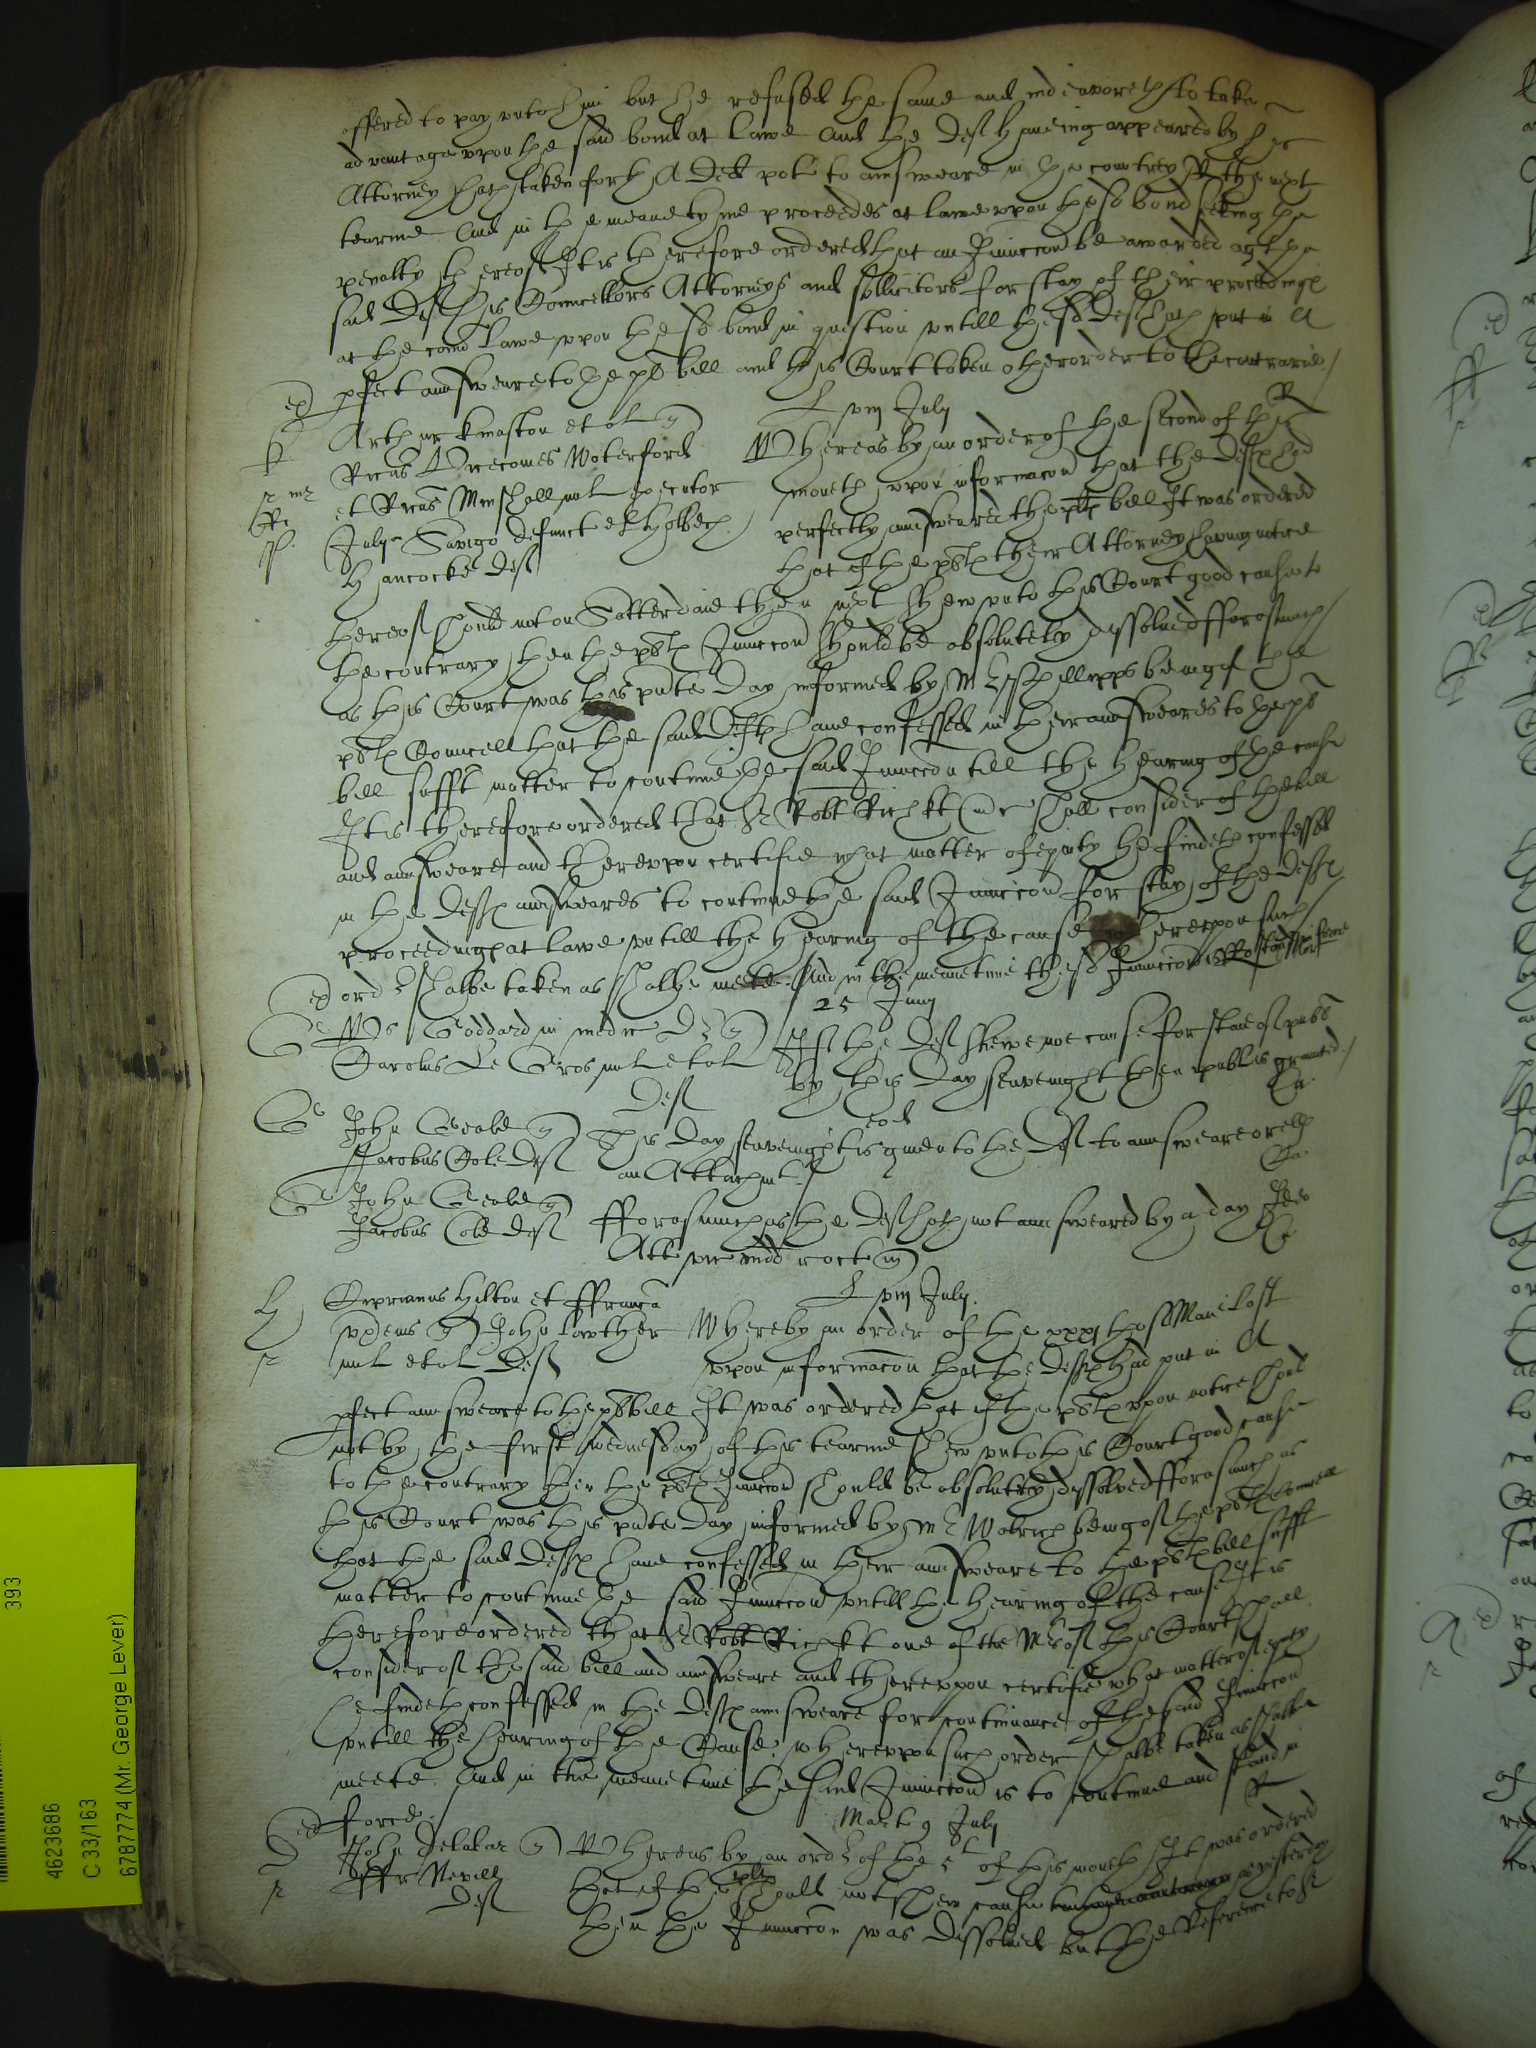 offered to pay unto him but he refused the same and indevoreth to take
advantage upon the said bond at Lawe And the Deft haveing appeared by his
Attorney hath taken forth A Ded pot to aunsweare in the countrey the next
tearme And in the meane tyme proceedes at lawe upon the sd bond the
penalty thereof It is therefore ordered that an Iniuccon be awarded agt the
said Deft his Councellors Attorneys and sollicitors for stay of their proceedings
at the comon Lawe upon the sd bond in question untill the sd Deft hath put in A
pfect aunsweare to the plts bill and this Court taken other order to the contrarie
viij July
Arthur kinaston et al
Ricus Waterford
et Ricus Minshall nul executor
July Savige defunct et
Hancocke Deft
Whereas by an order of the second of this
moneth upon informacon that the Defts had
perfectly aunsweared the plts bill It was ordered
that if the plts their Attorney having notice
thereof should not on Satterdaie then next shew unto this Court good cause to
the contrary then the plts Iniuccon should be absolutely dissolved fforasmuch
as this Court was this pnte day informed by Mr Phillipps being of the
plts Councell that the said Defts have confessed in their aunsweares to the plts
bill sufft matter to contine the said Iniuccon till the hearing of the cause
It is therefore ordered that Sr Robt Rich kt shall consider of the bill
and aunsweare and thereupon certifie what matter of equity he findeth confessed
in the Defts aunsweares to contine the said Iniuccon for stay of the Defts
proceedings at lawe untill the hearing of the cause whereupon such
order shalbe taken as shalbe meete And in the meane time the sd Iniuccon is to stand in force
25 Junij
Goddard
Carolus Le Gros nul et al
Deft
If the Deft shewe noe cause for staie of publs
by this day seavenight then publs is granted
John Geale
Jacobus Cole Deft
This day seavenight is given to the Deft to aunsweare or else
an Attachmt
John Geale
Jacobus Cole Deft
fforasmuch as the Deft hath not aunsweared by a day Ideo
Att
viij July
Ciprianus Hilton et ffranca
uxor eius John Lowther
nul et al Deft
Whereby an order of the xxxj th of Maie Last
upon informacon that the Defts had put in A
pfect aunsweare to the plts bill It was ordered that if the plts upon notice should
not by the first wednesday of this tearme shew unto this Court good cause
to the contrary then the plts Iniuccon should be absolutely dissolved fforasmuch as
this Court was this pnte day informed by Mr being of the plts Councell
that the said Defts have confessed in their aunsweare to the plts bill sufft
matter to continue the said Iniuccon untill the hearing of the cause It is
therefore ordered that Sr Robt Rich kt one of the Mrs of this Court shall
consider of the said bill and aunsweare and thereupon certifie what matter of equity
he findeth confessed in the Defts aunsweare for continuance of the said Iniuccon
untill the hearing of the Cause whereupon such order shalbe taken as shalbe
meete And in the meane time the said Iniuccon is to contine and stand in
force
Mart 9 July
John Delabar
Nevill
Deft
Whereas by an order of the 5 of this moneth It was ordered
that if the plt should not shew cause yesterday
then the Iniuccon was dissolved but the Reference to Sr
393
4623686
C 33/163
6787774 (Mr. George Lever)